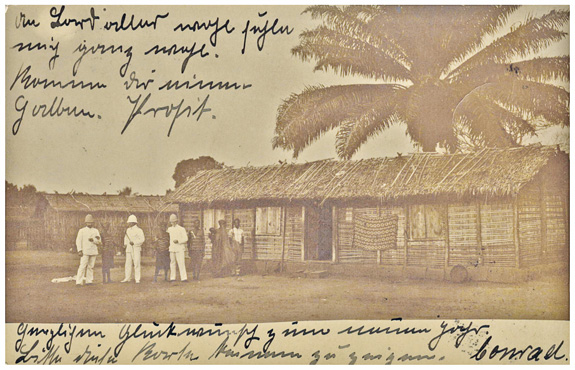 An Bord alles wohl fühle
mich ganz wohl.
Komme dir einen
Halben. Prosit.
Herzlichen Glückwunsch zum neuen Jahr.
Bitte diese Karte keinem zu zeigen. Conrad.